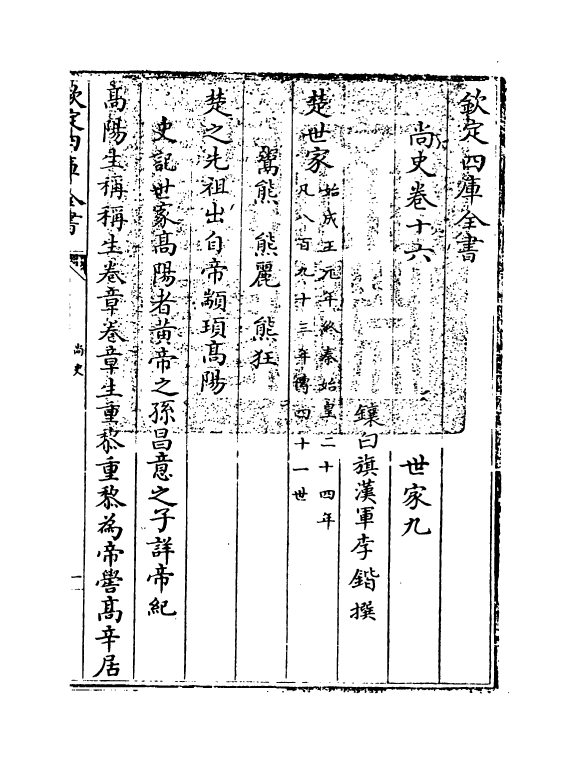 欽定四庫全書
尚史卷十六 世家九
鑲白旗漢軍李鍇撰
楚世家始成王元年終秦始皇二十四年
凡八百九十三年傳四十一世
鬻熊 熊麗 熊狂
楚之先祖出自帝顓頊髙陽
史記世家髙陽者黄帝之孫昌意之子詳帝紀
髙陽生稱稱生卷章卷章生重黎重黎為帝嚳髙辛居
欽定四庫全書
尚史
一